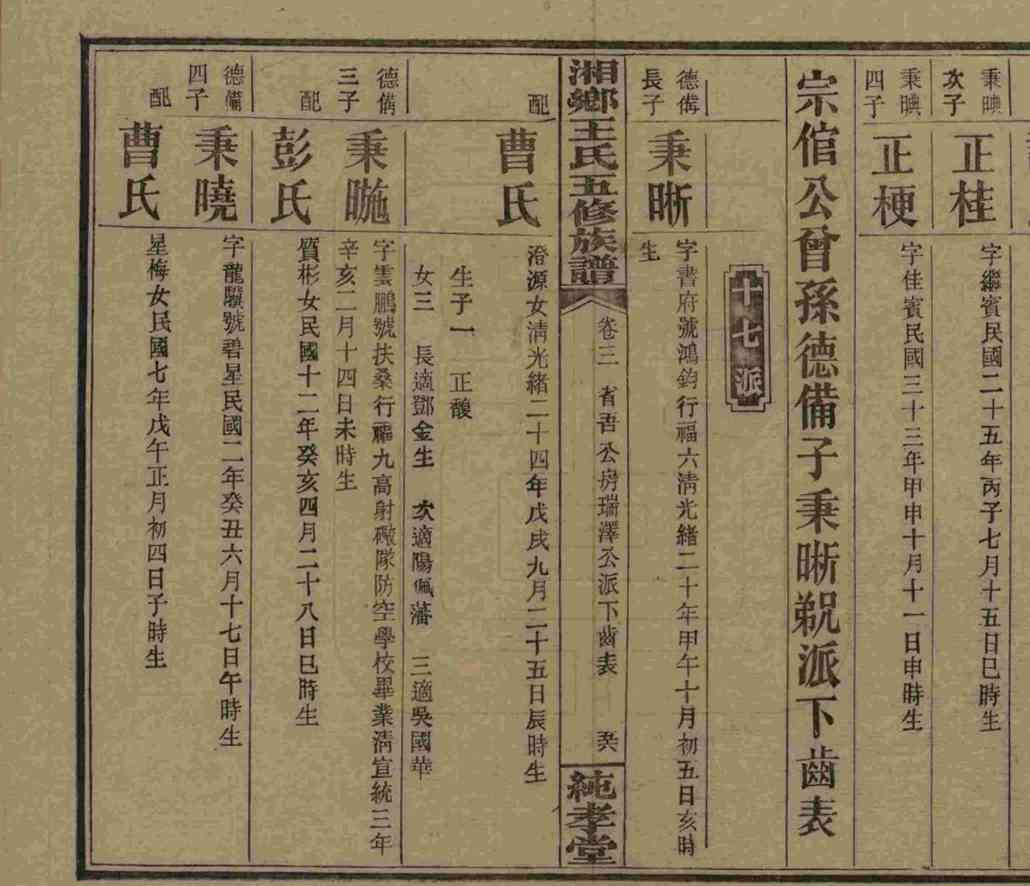 秉晪次子
正桂
字繼賓民國二十五年丙子七月十五日巳時生
秉晪四子
正梗
字佳賓民國三十三年甲申十月十一日申時生
宗倌公曾孫德備子秉晣派下齒表
十七派
德備長子
秉晣
字書府號鴻鈞行福六清光緒二十年甲午十月初五日亥時
生
湘鄉王氏五修族譜
卷三 省吾公房瑞澤公派下齒表
純孝堂
配
曹氏
澄源女清光緒二十四年戊戌九月二十五日辰時生
生子一 正馥
女三 長適鄧金生 次適陽佩藩 三適吳國華
德備三子
秉暆
字雲鵬號扶桑行福九高射礮隊防空學校畢業清宣統三年
辛亥二月十四日未時生
配
彭氏
質彬女民國十二年癸亥四月二十八日巳時生
德備四子
秉曉
字龍驥號碧星民國二年癸丑六月十七日午時生
配
曹氏
星梅女民國七年戊午正月初四日子時生